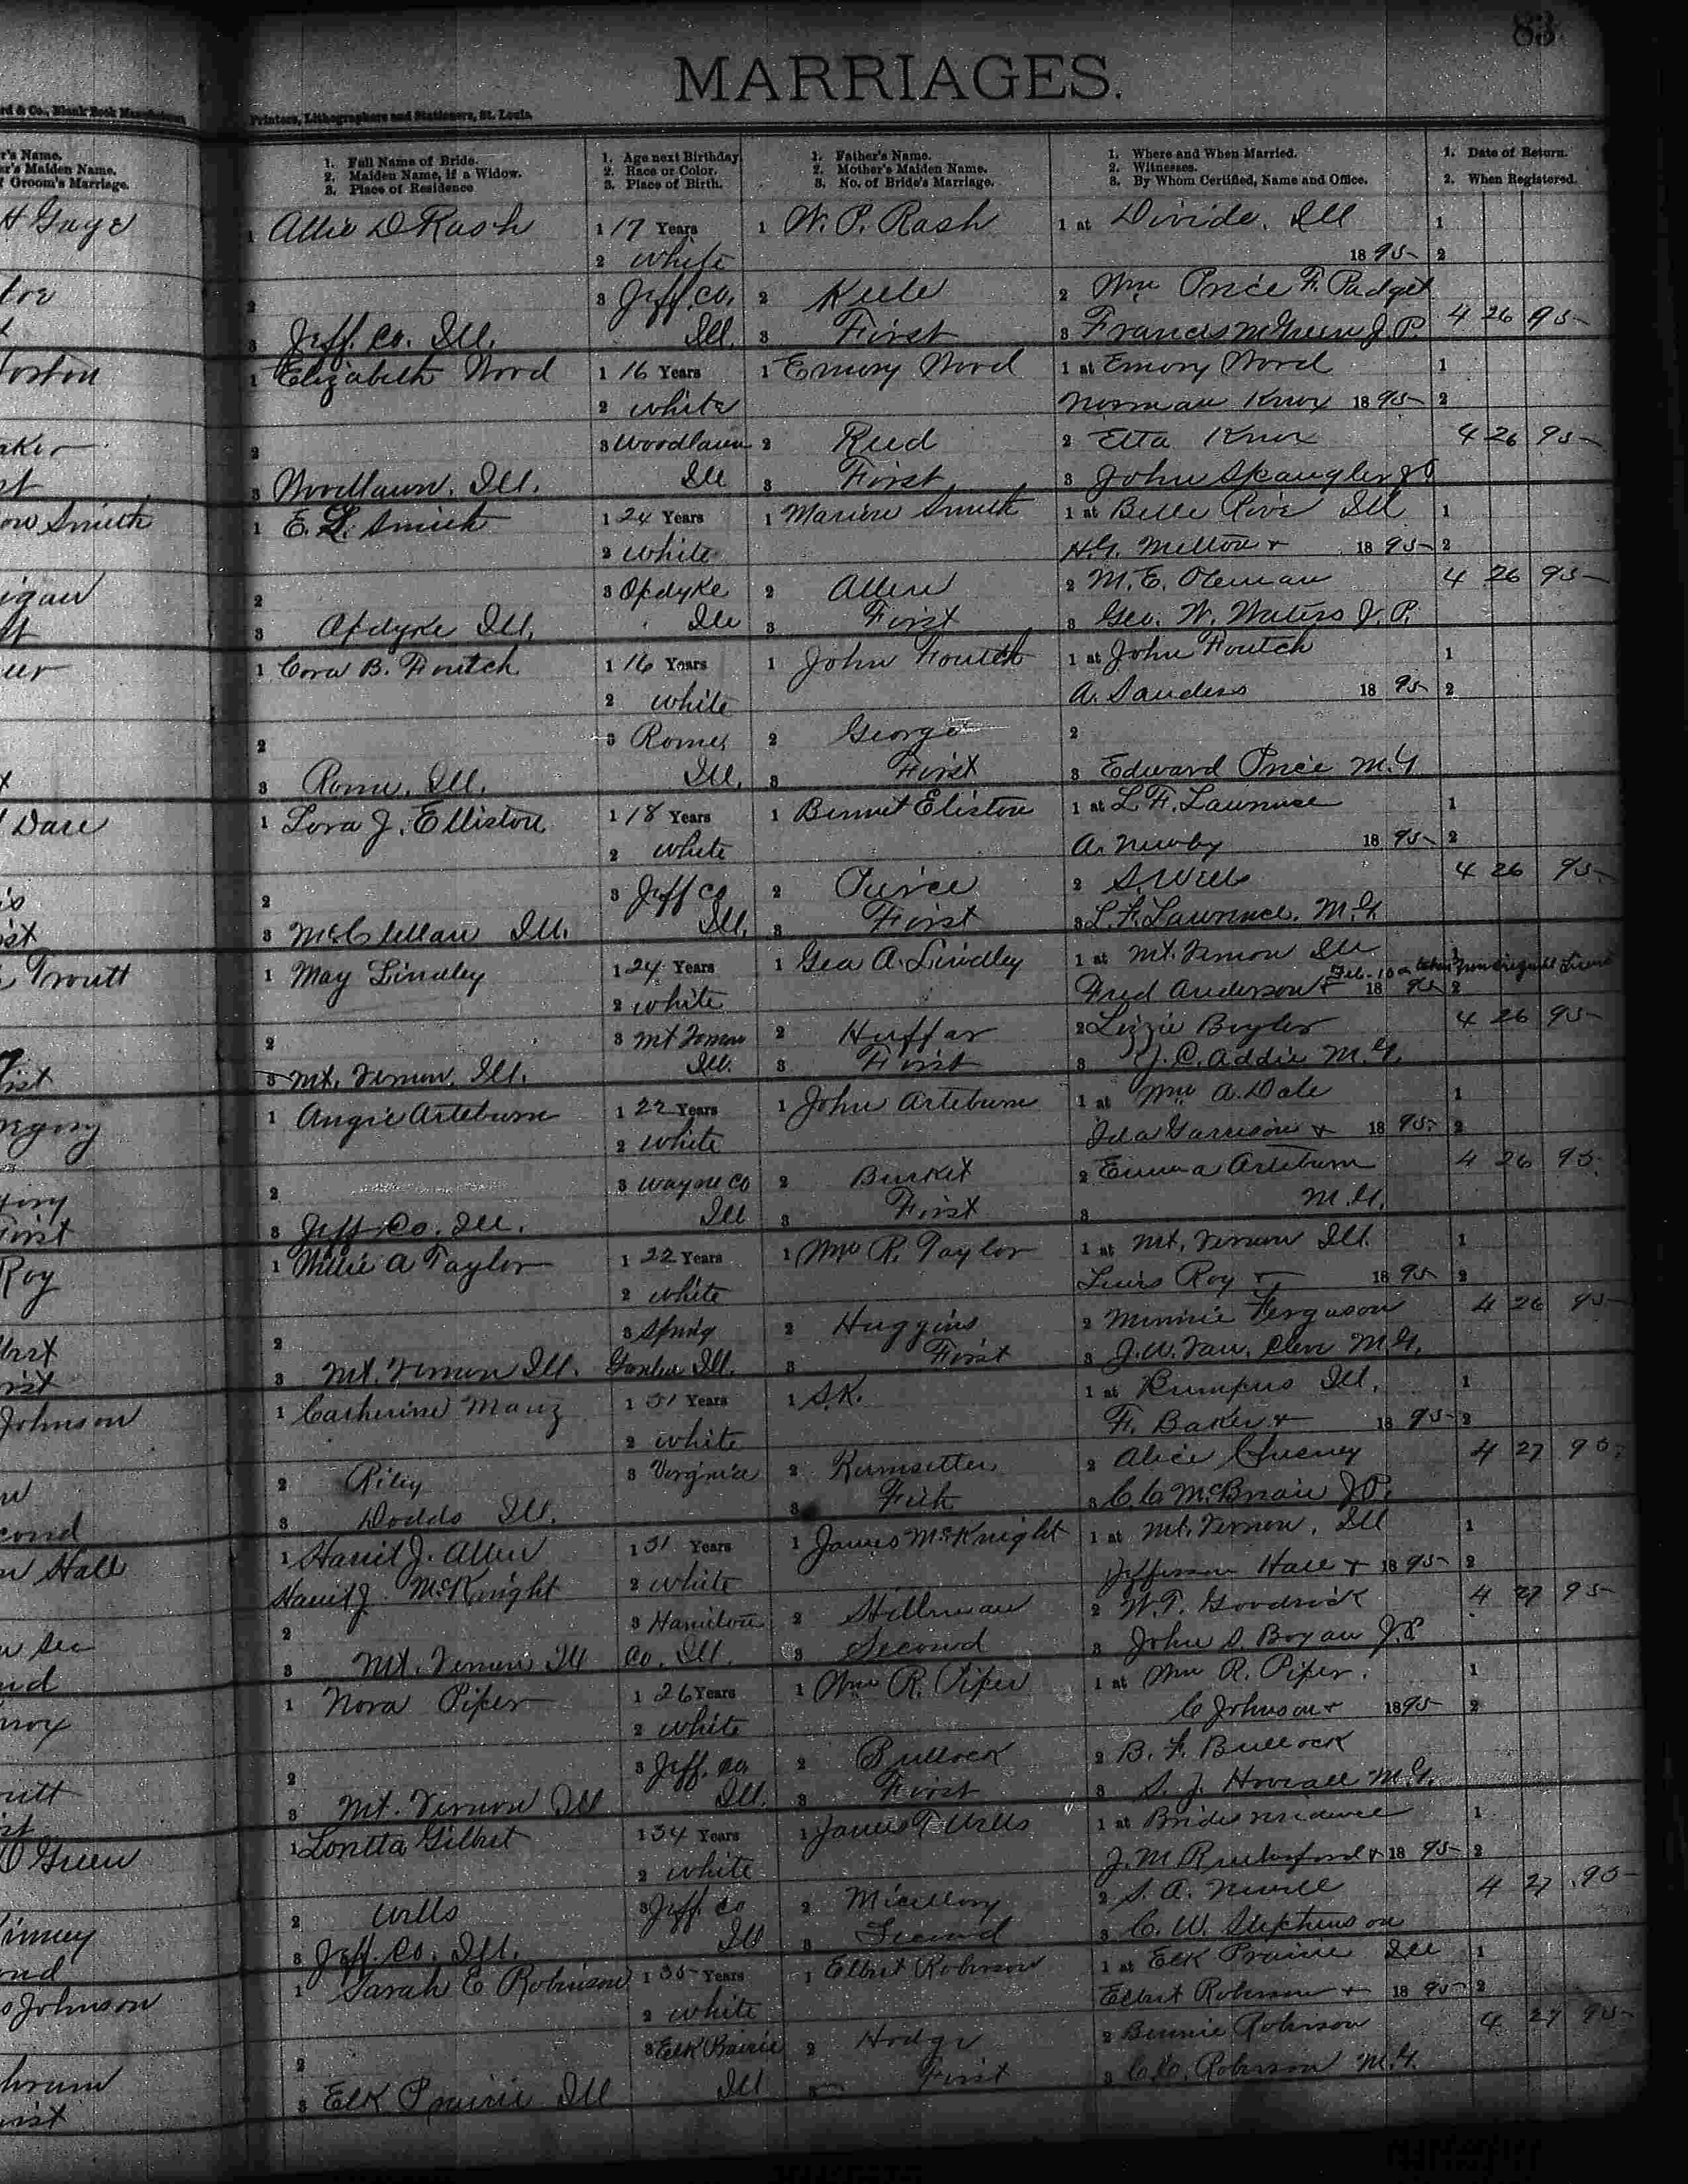 83
MARRIAGES.
Printers, Lithographers and Stationers, St. Louis.
1. Full Name of Bride.
2. Maiden Name, if a Widow.
3. Place of Residence
1. Age next Birthday.
2. Race or Color.
3. Place of Birth.
1. Father's Name.
2. Mother's Maiden Name.
3. No. of Bride's Marriage.
1. Where and When Married.
2. Witnesses.
3. By Whom Certified, Name and Office.
1. Date of Return.
2. When Registered.
1 Allie D Rash 1 17 Years 1 W. P. Rash 1 at Divide, Ill 1
2 White 1895 2
2 3 Jeff. Co. 2 Keele 2 Wm Price F. Padget
3 Jeff. Co. Ill. Ill. 3 First 3 Francis M Green J. P. 4 26 95
1 Elizabeth Wood 1 16 Years 1 Emory Wood 1 at Emory Wood 1
2 White Norman Knox 1895 2
2 3 Woodlawn 2 Reed 2 Etta Knox 4 26 95
3 Woodlawn. Ill. Ill 3 First 3 John Spangler J P
1 E. L. Smith 1 24 Years 1 Marion Smith 1 at Belle Rive Ill 1
2 White H. G. Melton + 1895 2
2 3 Opdyke 2 Allen 2 M. E. 4 26 95
3 Opdyke Ill. Ill 3 First 3 Geo. W. Waters J. P.
1 Cora B. Foutch 1 16 Years 1 John Foutch 1 at John Foutch 1
2 White A. Sanders 1895 2
2 3 Rome, 2 George 2
3 Rome, Ill. Ill. 3 First 3 Edward Price M. G
1 Lora J. Elliston 1 18 Years 1 Bennet Eliston 1 at L. F. Lawrence 1
2 White A. Newby 1895 2
2 3 Jeff Co 2 Peirce 2 S. Wells 4 26 95
3 McClellan Ill. Ill. 3 First 3 L. F. Lawrence. M. G.
1 May Lindley 1 24 Years 1 Geo A. Lindley 1 at Mt. Vernon Ill 1
2 White Fred Anderson + 18 2
2 3 Mt Vernon 2 Huffar 2 Lizzie Bogler 4 26 95
3 Mt. Vernon. Ill. Ill. 3 First 3 J. C. Addie M. G.
1 Angie Arteburn 1 22 Years 1 John Arteburn 1 at Wm A. Dale 1
2 White Ida Garrison + 1895 2
2 3 Wayne Co 2 Burket 2 Emma Arteburn 4 26 95
3 Jeff Co. Ill. Ill 3 First 3 M. G.
1 Willie A Taylor 1 22 Years 1 Wm R. Taylor 1 at Mt. Vernon Ill. 1
2 White Lewis Roy + 1895 2
2 3 Spring 2 Huggins 2 Minnie Ferguson 4 26 95
3 Mt. Vernon Ill. Garden Ill. 3 First 3 J. W. Van. Cleve M. G.
1 Catherine Manz 1 51 Years 1 S. K. 1 at Bumpus Ill. 1
2 White F. Baker + 1895 2
2 Riley 3 Virginia 2 Rumsetter 2 Alice Cheney 4 27 95
3 Dodds Ill. 3 Fifth 3 C. C. McBriar J P.
1 Harriet J. Allen 1 51 Years 1 James McKnight 1 at Mt. Vernon, Ill 1
Harriet J. McKnight 2 White Jefferson Hall + 1895 2
2 3 Hamilton 2 Stillman 2 W. T. Goodrick 4 27 95
3 Mt. Vernon Ill Co. Ill. 3 Second 3 John S. Bogan J. P
1 Nora Piper 1 26 Years 1 Wm R. Piper 1 at Wm R. Piper. 1
2 White C Johnson + 1895 2
2 3 Jeff. Co. 2 Bullock 2 B. F. Bullock
3 Mt. Vernon Ill Ill. 3 First 3 S. J. M. G.
1 Loretta Gilbert 1 34 Years 1 James T Wells 1 at Brides residence 1
2 White J. M Rutherford + 1895 2
2 Wells 3 Jeff. Co 2 2 S. A. Newell 4 27 95
3 Jeff. Co. Ill. Ill 3 Second 3 C. W. Stephenson
1 Sarah E Robinson 1 35 Years 1 Elbert Robinson 1 at Elk Prairie Ill 1
2 White Elbert Robinson + 1895 2
2 3 Elk Prairie 2 Hodge 2 Bennie Robinson 4 27 95
3 Elk Prairie Ill Ill 3 First 3 C. C. Robinson M. G.